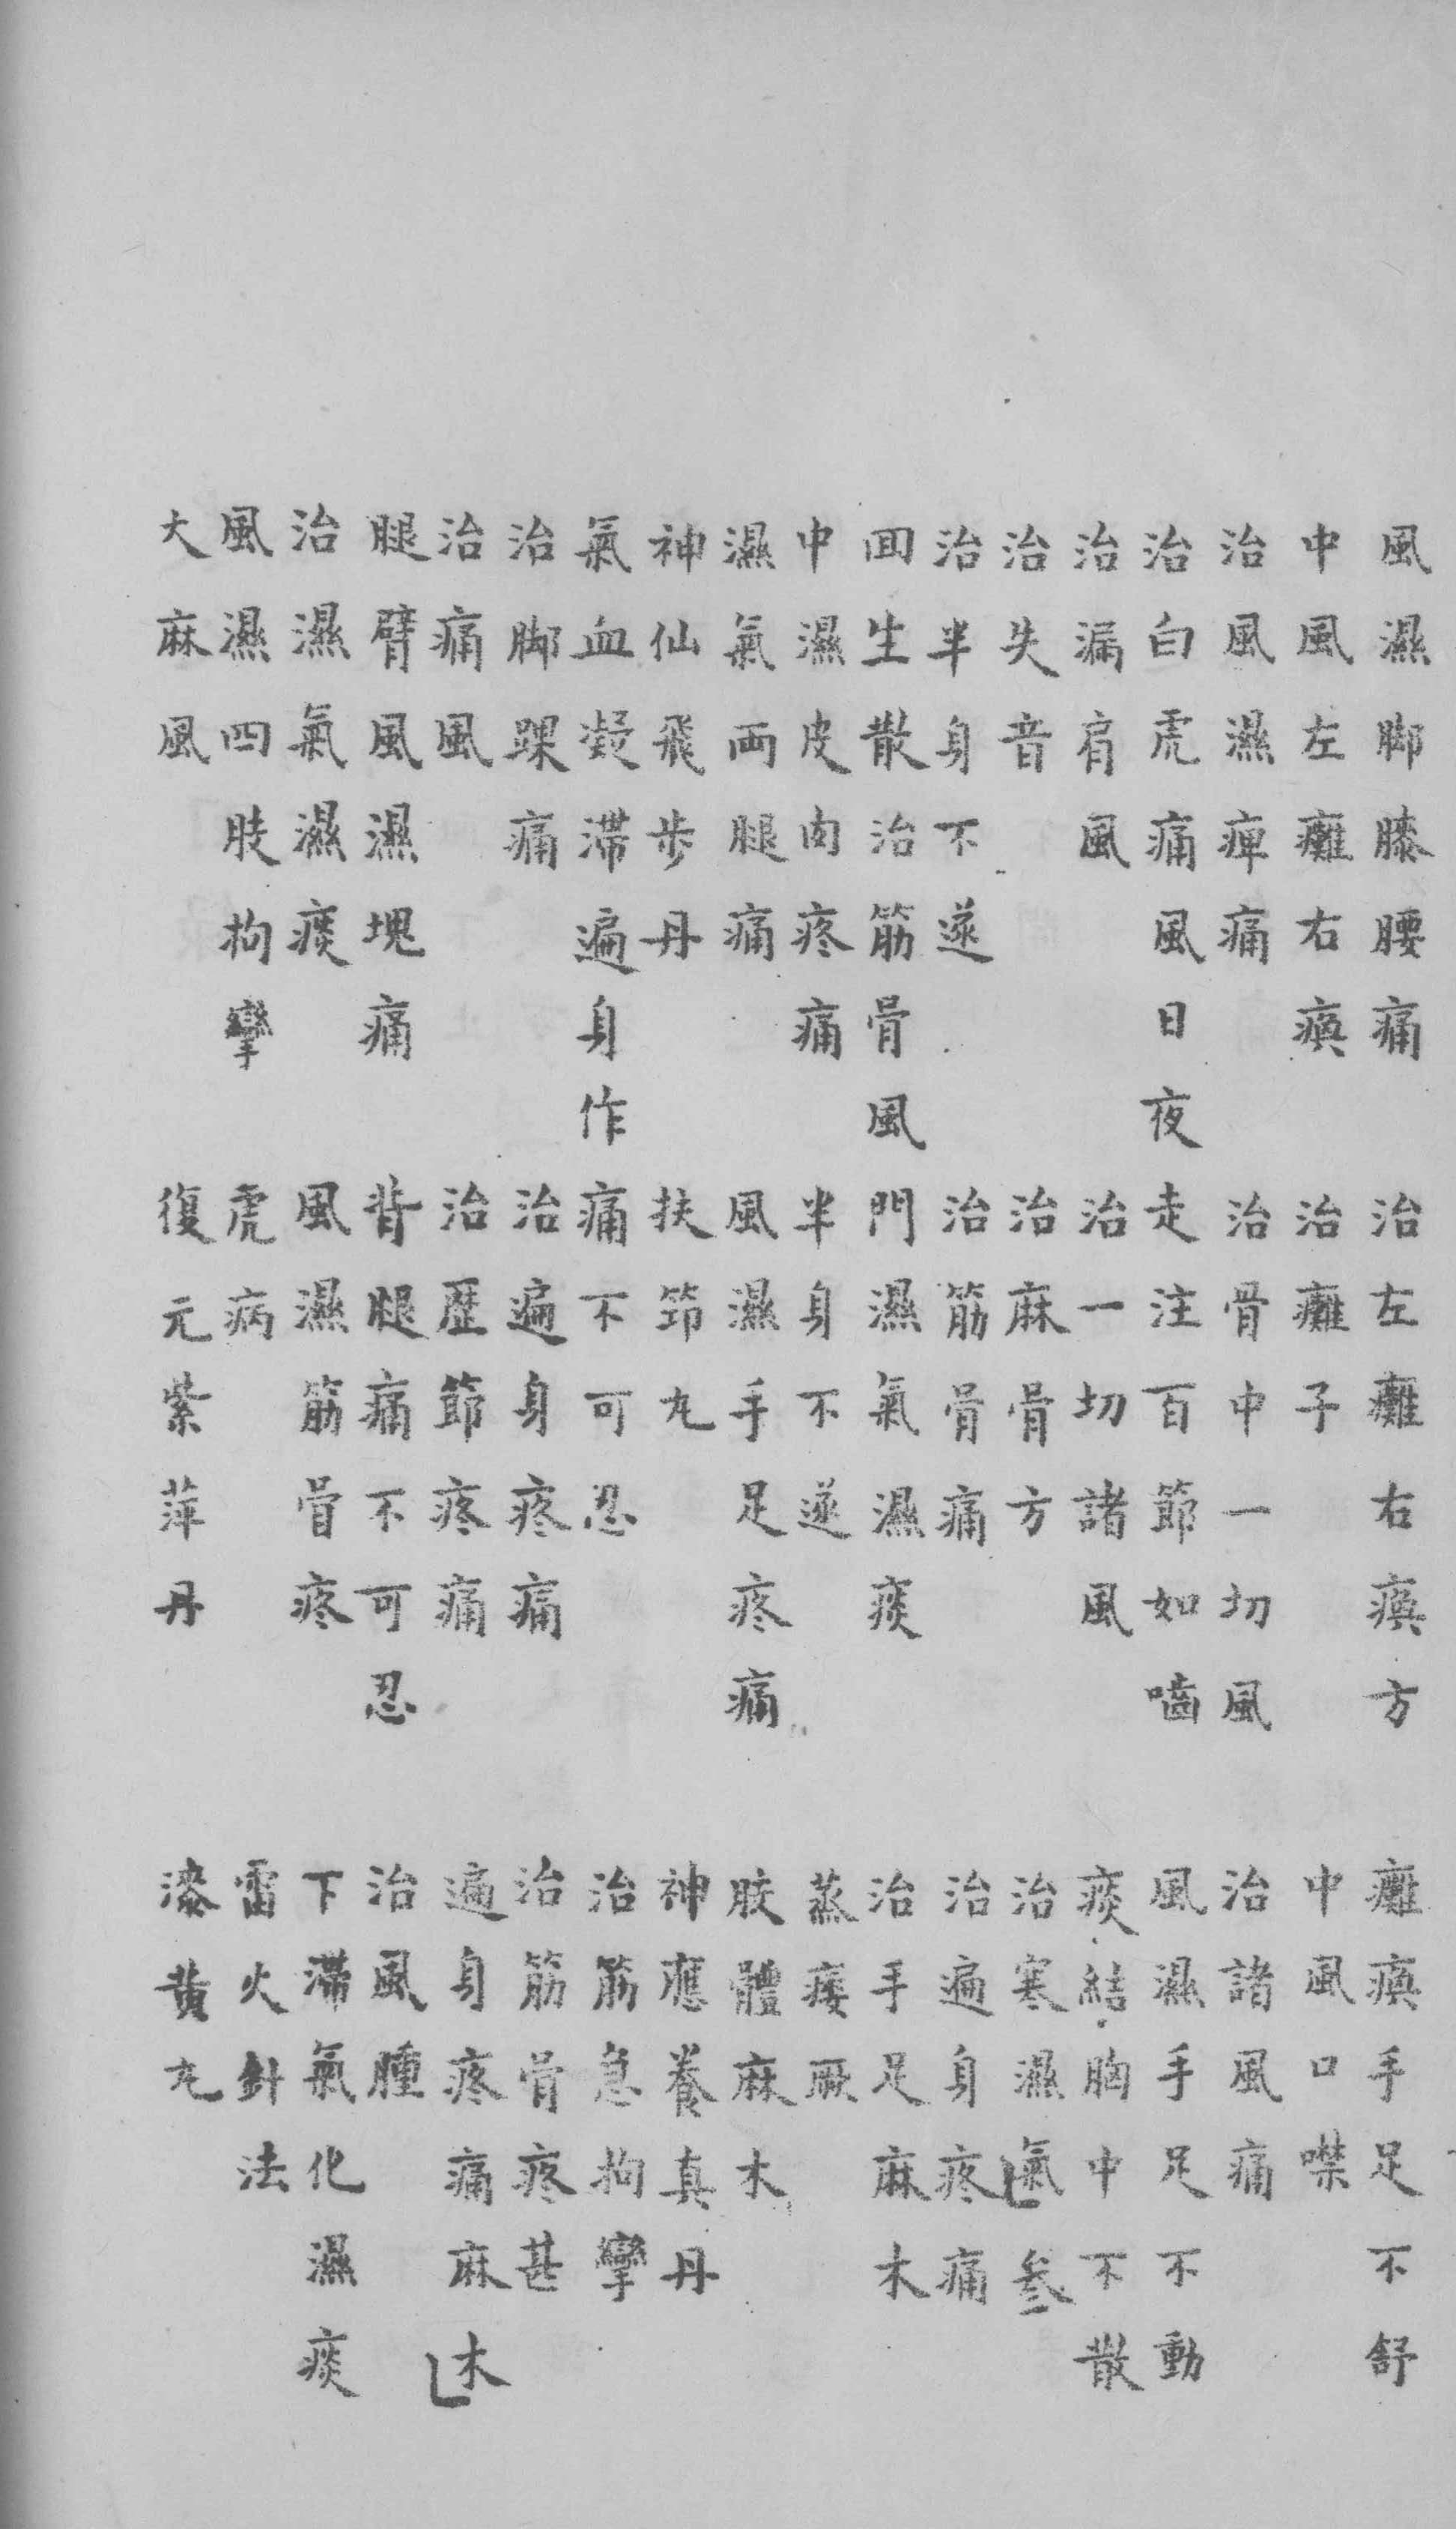 風濕脚膝腰痛 治左癱右瘓方 癱瘓手足不舒
中風左癱右瘓 治癱子 中風口噤
治風濕痺痛 治骨中一切風 治諸風痛
治白虎痛風日夜走注百節如嚙 風濕手足不動
治漏肩風 治一切諸風 痰結胸中不散
治失音 治麻骨方 治寒濕氣叁
治半身不遂 治筋骨痛 治遍身疼痛
囬生散治筋骨風門濕氣濕痰 治手足麻木
中濕皮肉疼痛 半身不遂 蒸痿厥
濕氣両腿痛 風濕手足疼痛 肢體麻木
神仙飛步丹 扶笻丸 神應養真丹
氣血凝滞遍身作痛不可忍 治筋急拘攣
治脚踝痛 治遍身疼痛 治筋骨疼甚
治痛風 治歷節疼痛 遍身疼痛麻木
腿臂風濕塊痛 背腿痛不可忍 治風腫
治濕氣濕痰 風濕筋骨疼 下滯氣化濕痰
風濕四肢拘攣 虎病 雷火針法
大麻風 復元紫萍丹 漆黃丸